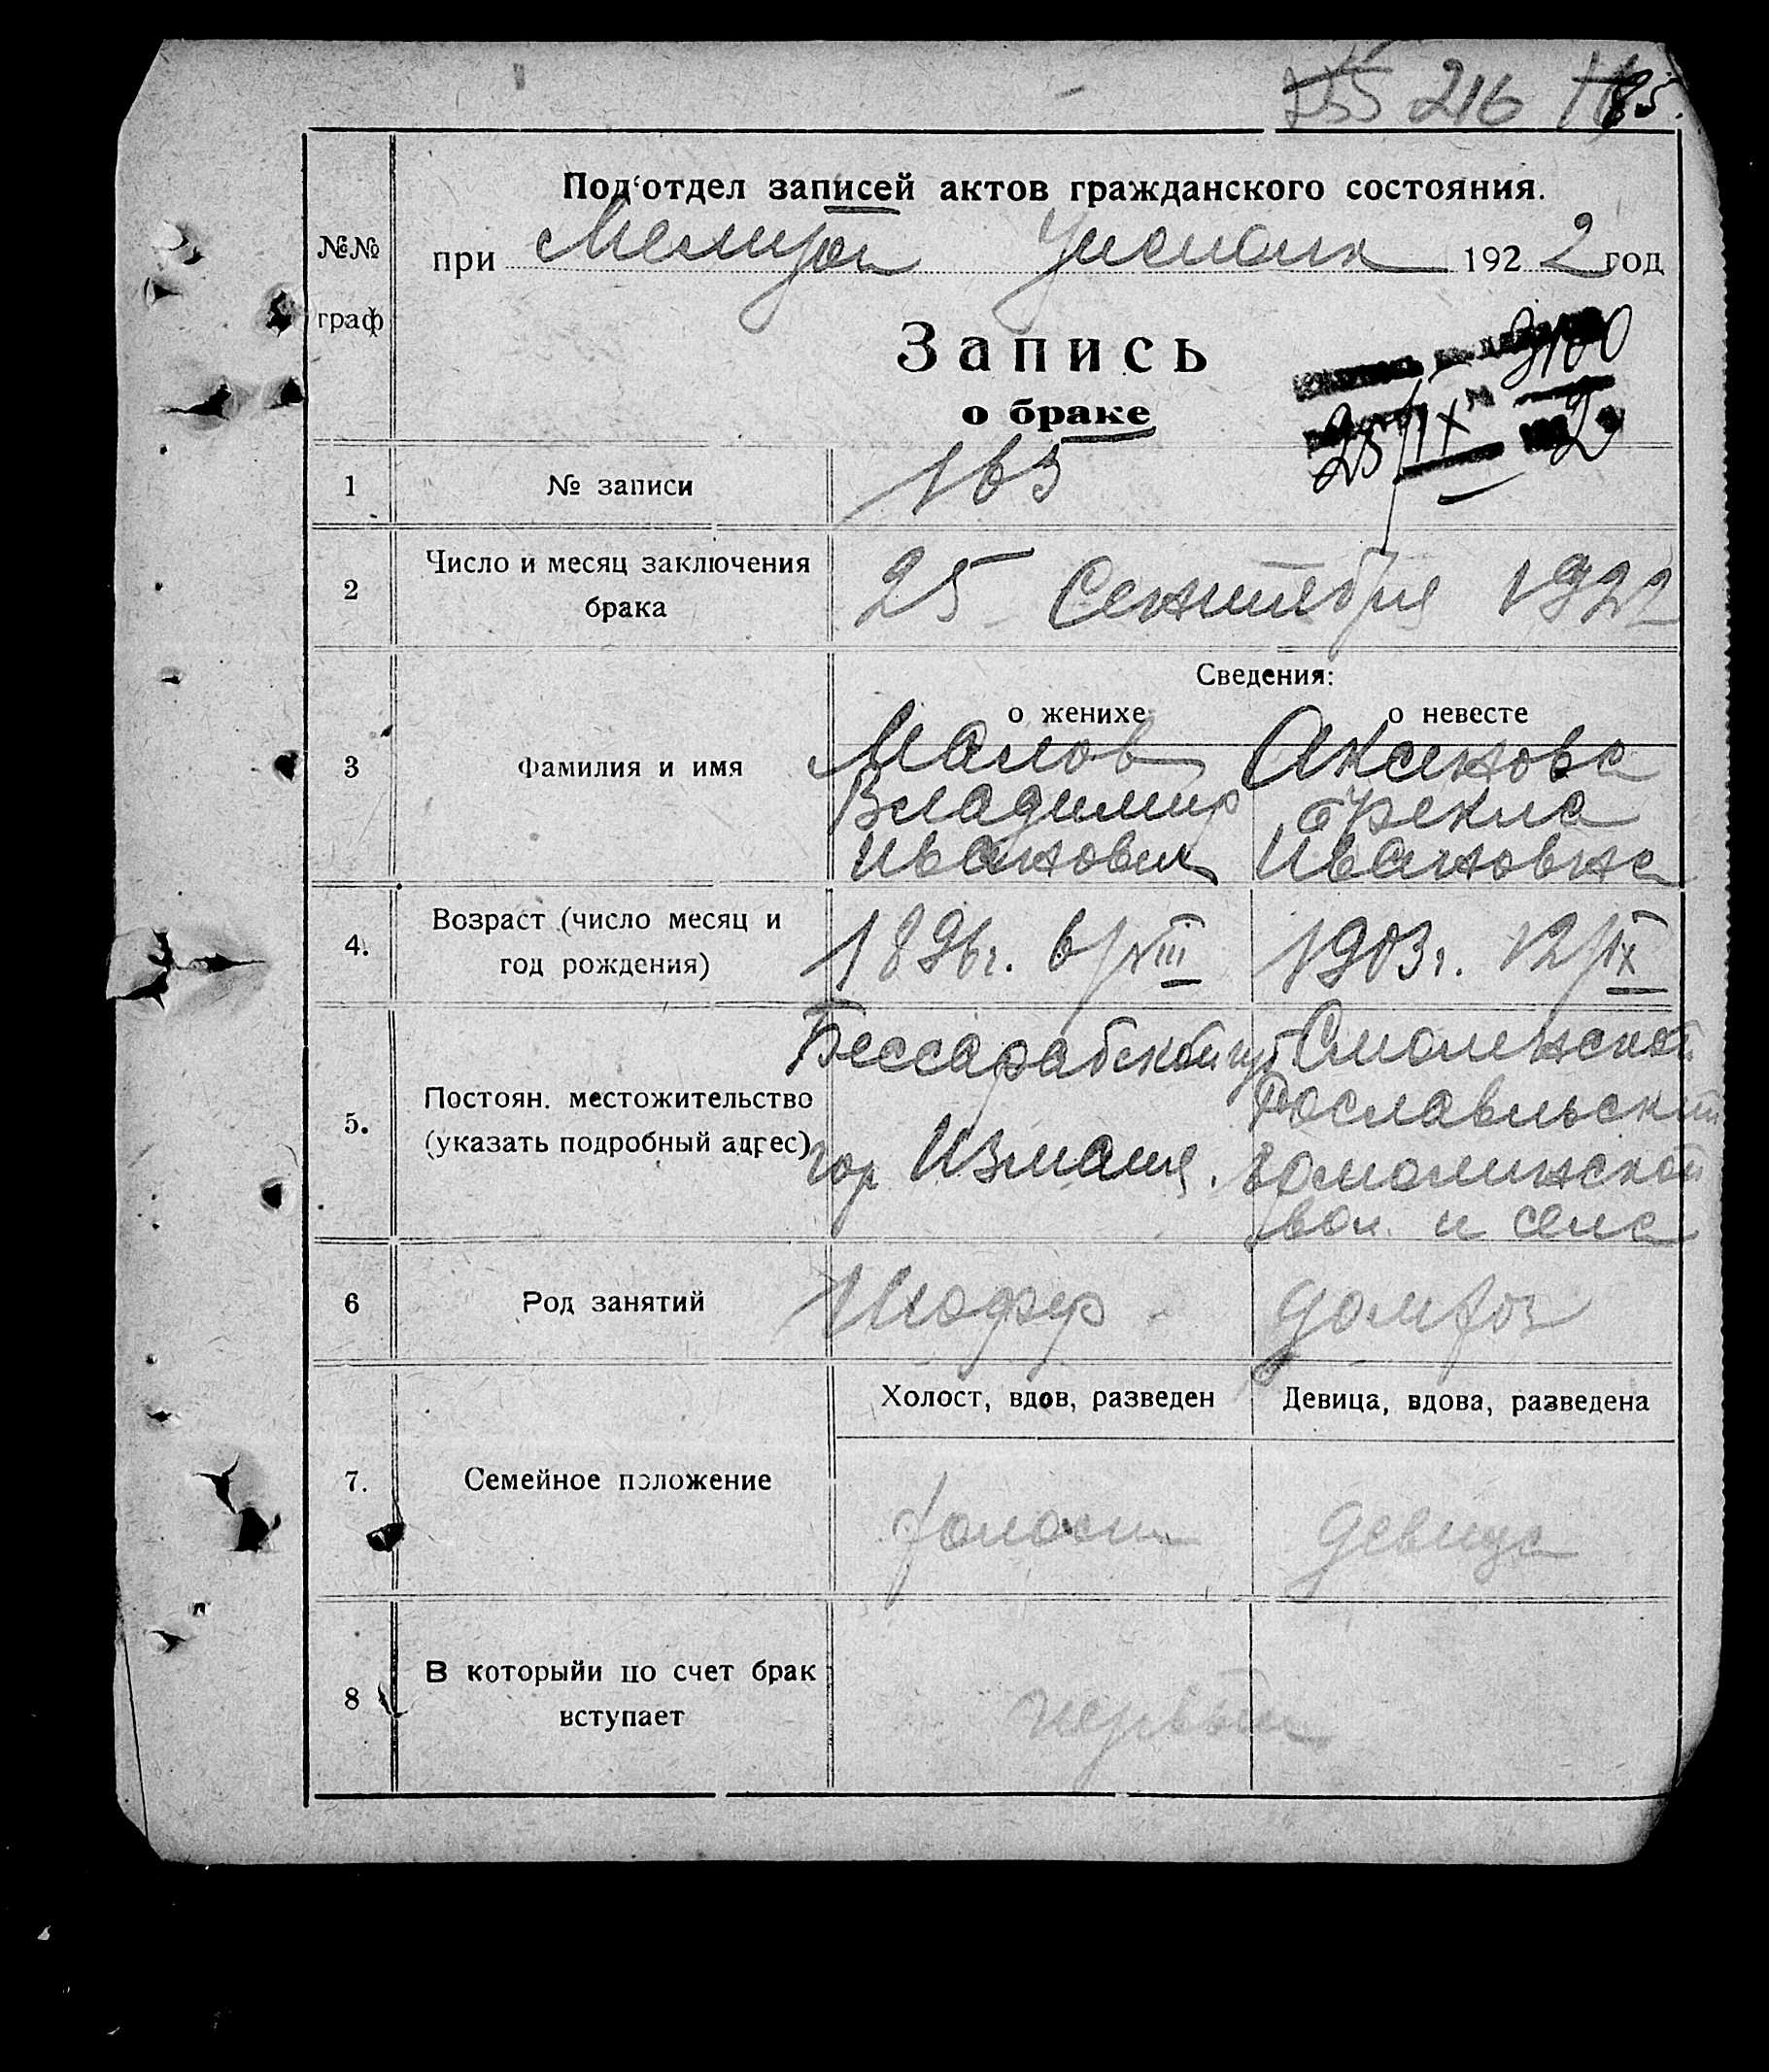 216
Под'отдел записей актов гражданского состояния.
№№
граф
при 1922 год
Запись
о браке
25/IX 2
1 № записи 165
2 Число и месяц заключения брака 25 Сентября 1922
Сведения:
о женихе о невесте
3 Фамилия и имя
Малов Аксенова
Владимир Фекла
Иванович Ивановна
4. Возраст (число месяц и
год рождения)
1896г. 6/VIII 1903г. 12/IX
5. Постоян. местожительство
(указать подробный адрес)
Бессарабской губ Смоленской
Рославльск
гор Измаил.
вол. и села
6 Род занятий Шофер домхоз
Холост, вдов, разведен Девица, вдова, разведена
7. Семейное положение холост девица
8 В которыйи по счет брак
вступает
первый